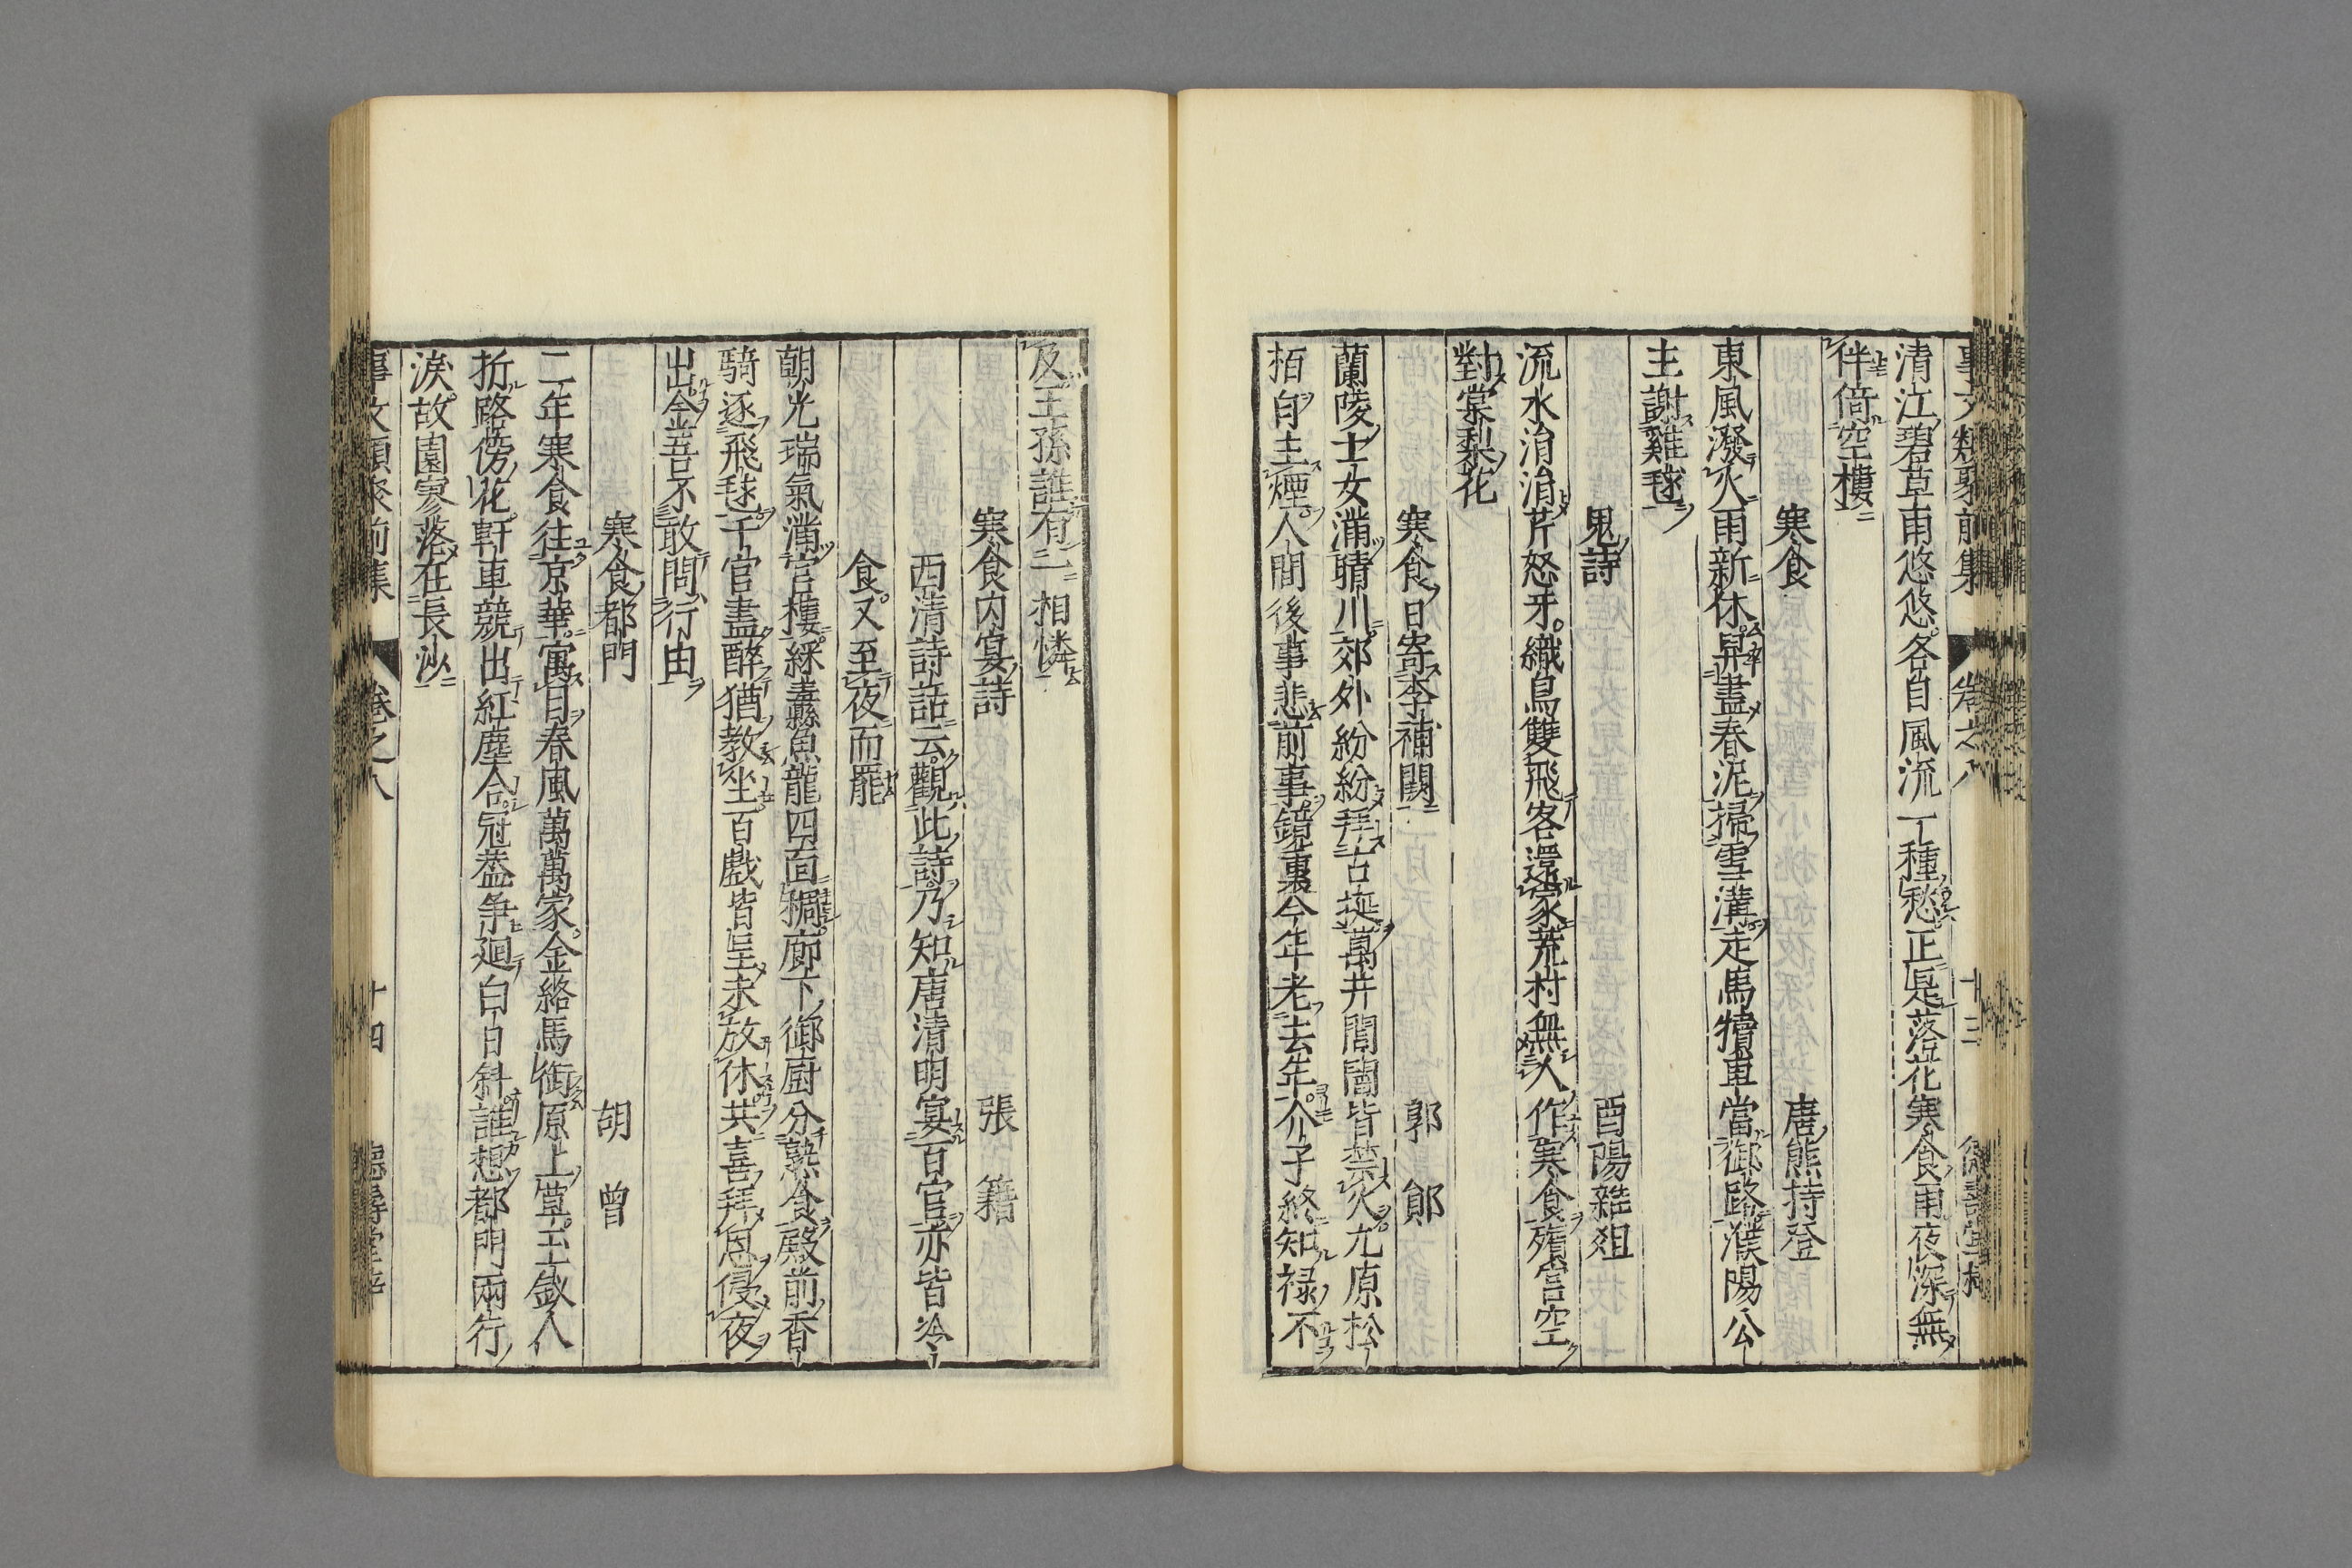 事文類聚前集 卷之八 十三
清江碧草雨悠悠各自風流一種愁正是落花寒食雨夜深無
伴倚空樓
寒食 唐熊持登
東風潑火雨新休舁盡春泥掃雪溝走馬犢車當御路濮陽公
主謝雞毬
鬼詩 酉陽雜爼
流水涓涓芹怒牙織鳥雙飛客還家荒村無人作寒食殯宮空
對棠梨花
寒食日寄李補闕 郭 鄖
蘭陵士女滿晴川郊外紛紛拜古埏萬井閭閻皆禁火九原松
栢自生煙人間後事悲前事鏡裏今年老去年介子終知禄不
及王孫誰有一相憐
寒食内宴詩 張 籍
西清詩話云觀此詩乃知唐清明宴百官亦皆冷
食又至夜而罷
朝光瑞氣滿宮樓綵纛魚龍四面稠廊下御厨分熟食殿前香
騎逐飛毬千官盡醉猶教坐百戲皆呈未放休共喜拜恩侵夜
出金吾不敢問行由
寒食都門 胡 曾
二年寒食往京華寓目春風萬萬家金絡馬銜原上草玉釵人
折路傍花軒車競出紅塵合冠蓋争迴白日斜誰想都門兩行
淚故園寥落在長沙
事文類聚前集 卷之八 十四